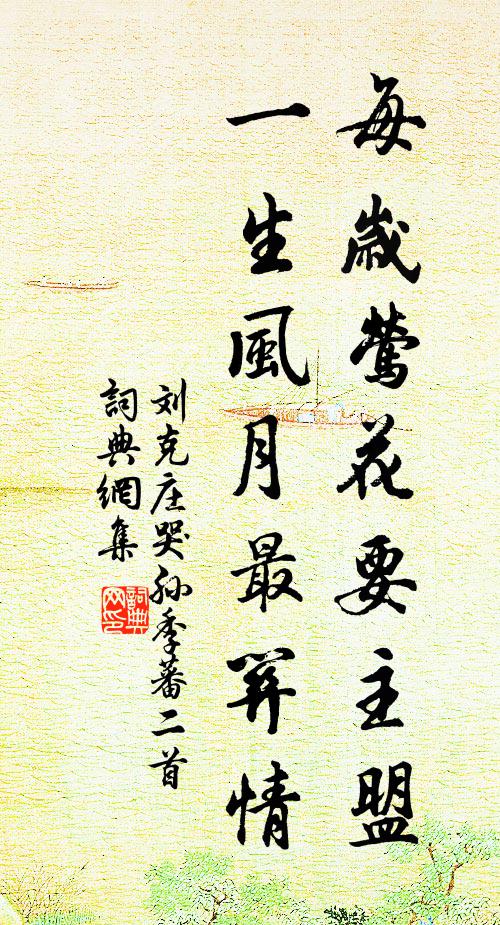 每歲鶯花要主盟
一生風月最關情
刘克庄哭孙季蕃二首
詞典網集
詞典
网印